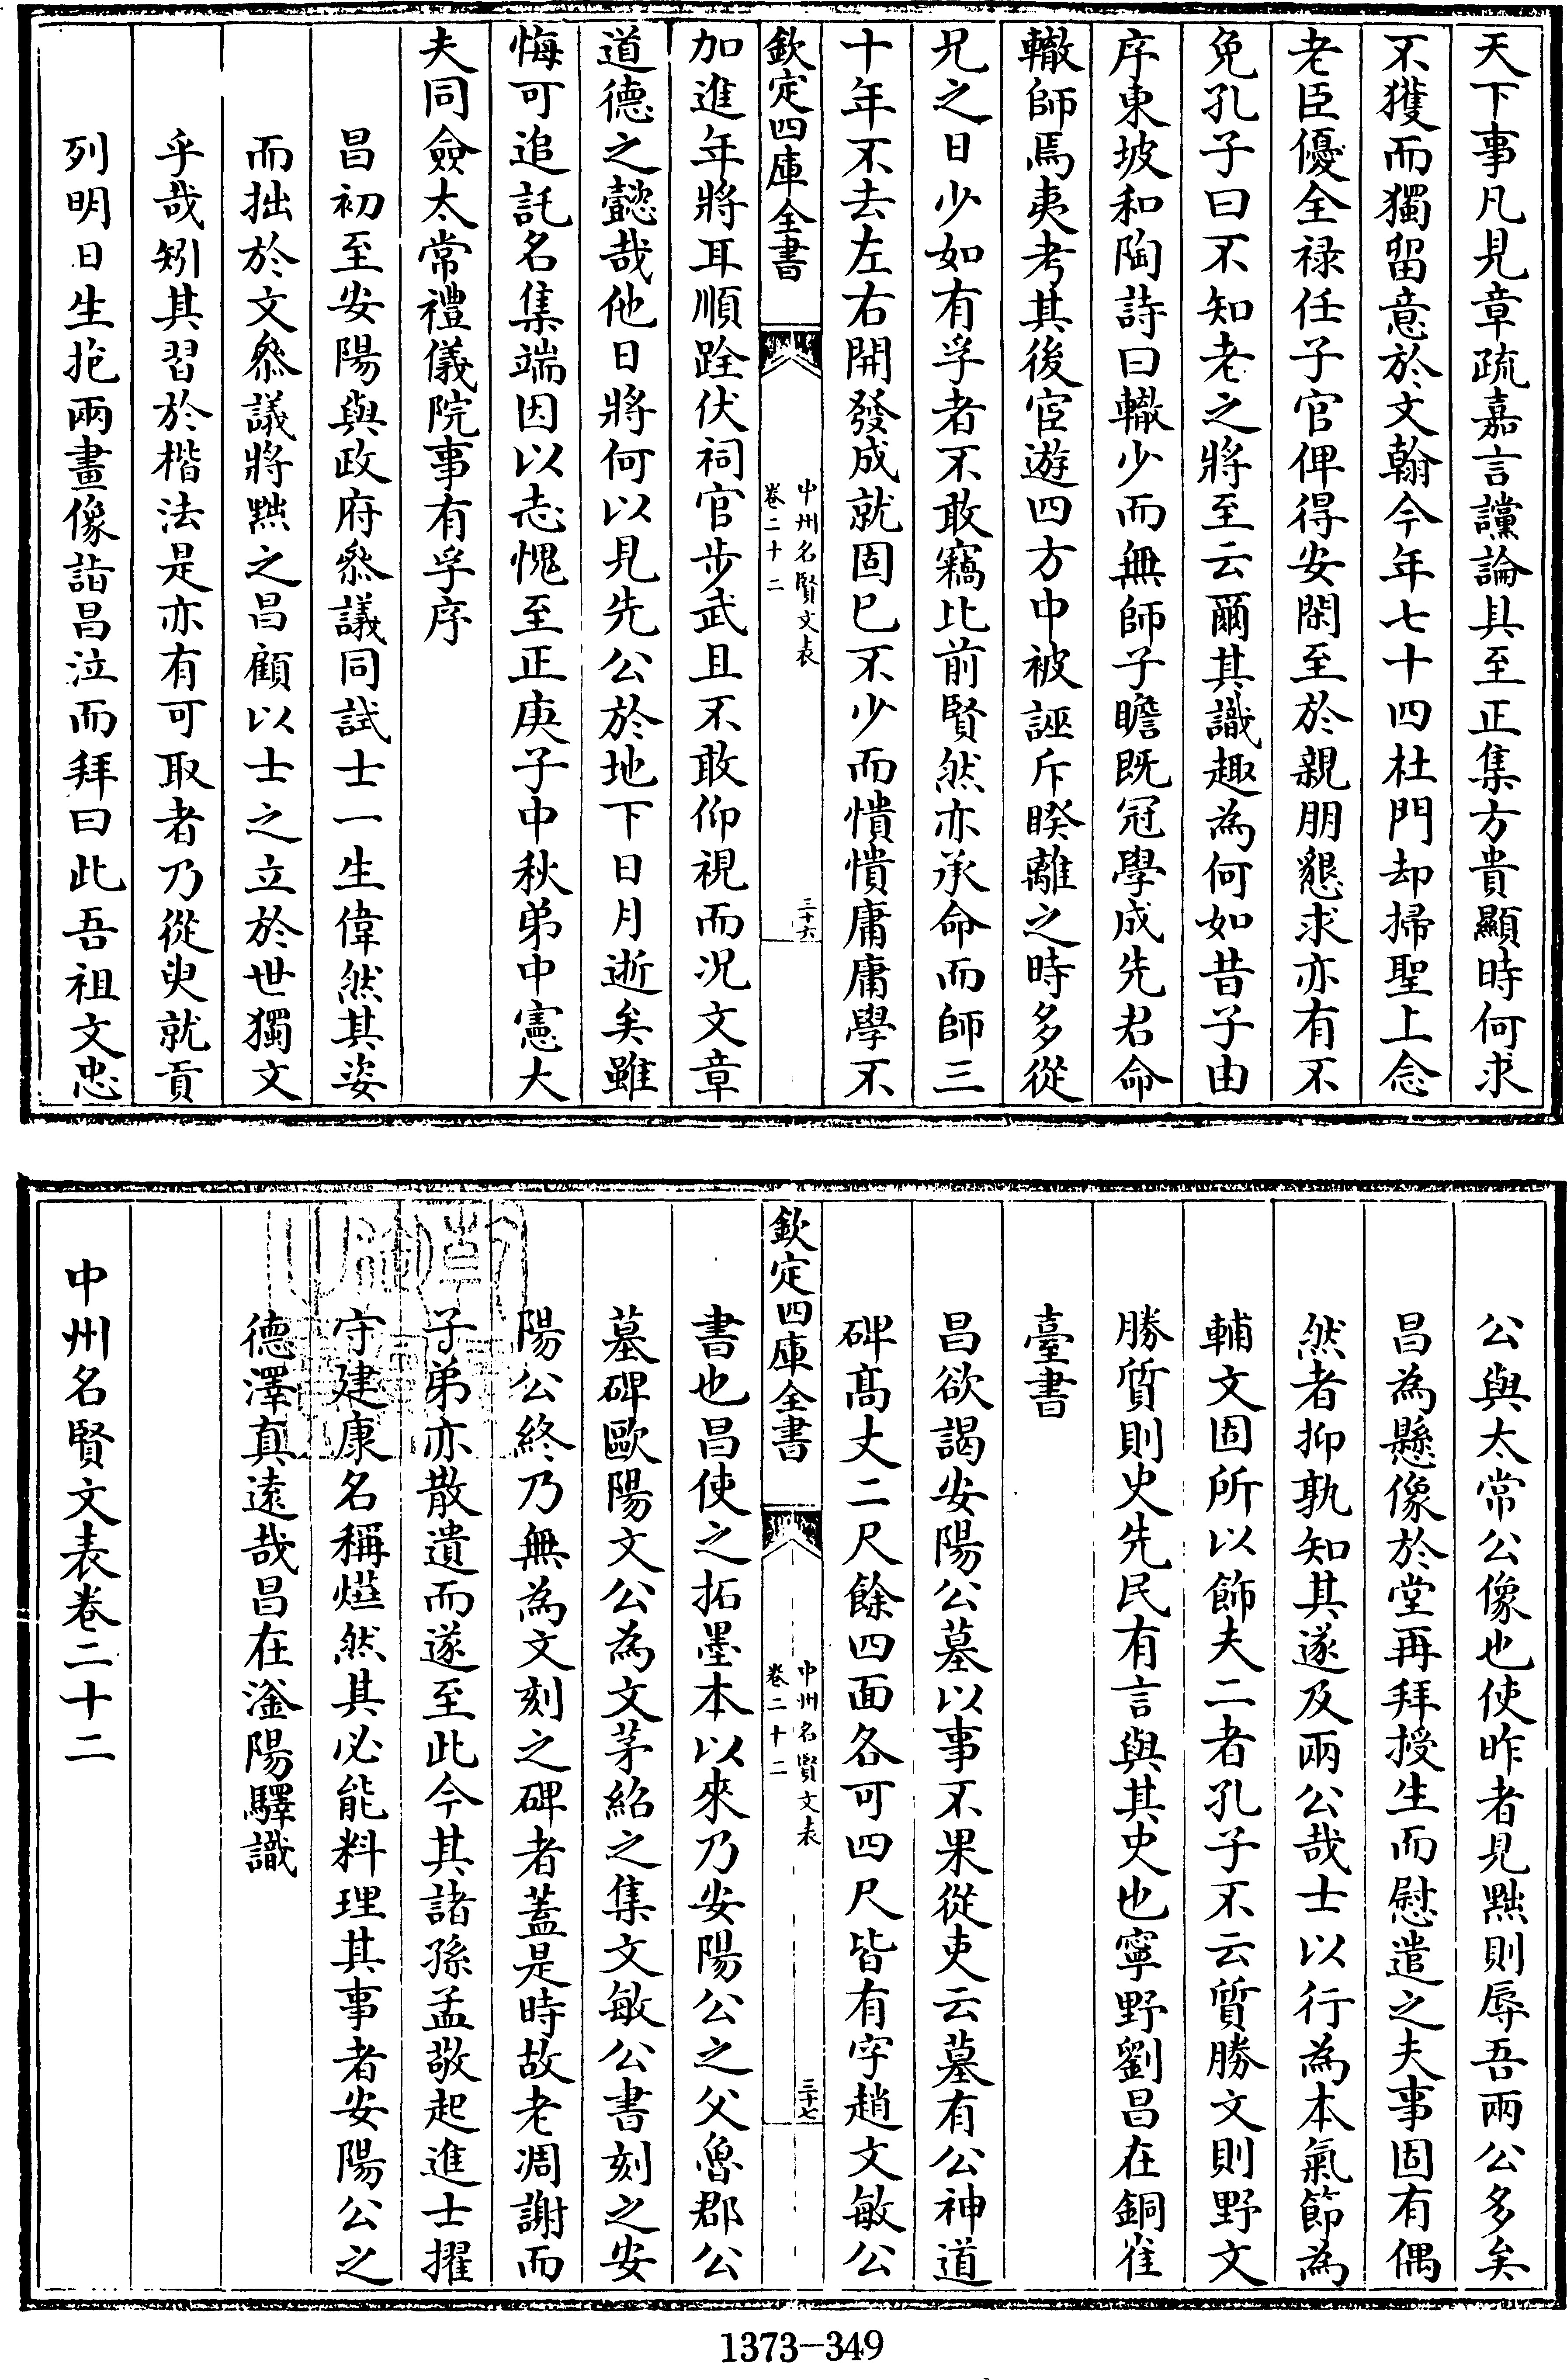 天下事凡見章疏嘉言讜論具至正集方貴顯時何求
不獲而獨留意於文翰今年七十四杜門却掃聖上念
老臣優全祿任子官俾得安閑至於親朋懇求亦有不
免孔子曰不知老之將至云爾其識趣為何如昔子由
序東坡和陶詩曰轍少而無師子瞻既冠學成先君命
轍師焉夷考其後宦遊四方中被誣斥睽離之時多從
兄之日少如有孚者不敢竊比前賢然亦承命而師三
十年不去左右開發成就固已不少而憒憒庸庸學不
欽定四庫全書
中州名賢文表
卷二十二
三十六
加進年將耳順跧伏祠官步武且不敢仰視而况文章
道德之懿哉他日將何以見先公於地下日月逝矣雖
悔可追託名集端因以志愧至正庚子中秋弟中憲大
夫同僉太常禮儀院事有孚序
昌初至安陽與政府叅議同試士一生偉然其姿
而拙於文叅議將黜之昌顧以士之立於世獨文
乎哉矧其習於楷法是亦有可取者乃從臾就貢
列明日生抱兩畫像詣昌泣而拜曰此吾祖文忠
公與太常公像也使昨者見黜則辱吾兩公多矣
昌為懸像於堂再拜授生而慰遣之夫事固有偶
然者抑孰知其遂及兩公哉士以行為本氣節為
輔文固所以飾夫二者孔子不云質勝文則野文
勝質則史先民有言與其史也寧野劉昌在銅雀
臺書
昌欲謁安陽公墓以事不果從吏云墓有公神道
碑高丈二尺餘四面各可四尺皆有字趙文敏公
欽定四庫全書
中州名賢文表
卷二十二
三十七
書也昌使之拓墨本以來乃安陽公之父魯郡公
墓碑歐陽文公為文茅紹之集文敏公書刻之安
陽公終乃無為文刻之碑者蓋是時故老凋謝而
子弟亦散遺而遂至此今其諸孫孟敬起進士擢
守建康名稱燁然其必能料理其事者安陽公之
德澤真遠哉昌在滏陽驛識
中州名賢文表卷二十二
1373-349